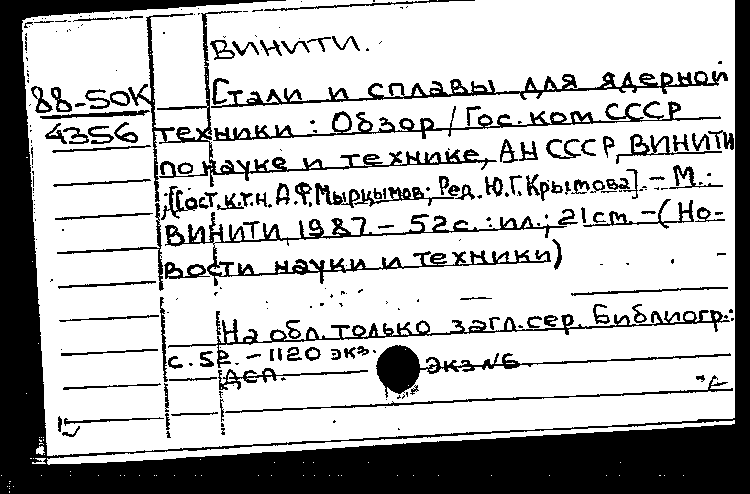 ВИНИТИ.
88-50К Стали и сплавы для ядерной
4356 техники : Обзор / Гос. ком СССР
по науке и технике, АН СССР, ВИНИТИ
; [Сост. к.т.н. А.Ф. Мырцымов; Ред. Ю.Г. Крымова]. - М. :
ВИНИТИ, 1987. - 52 с. : ил.; 21 см. - (Но-
вости науки и техники)
На обл. только загл. сер. Библиогр.:
с. 52. - 1120 экз.
Деп. Экз №6.